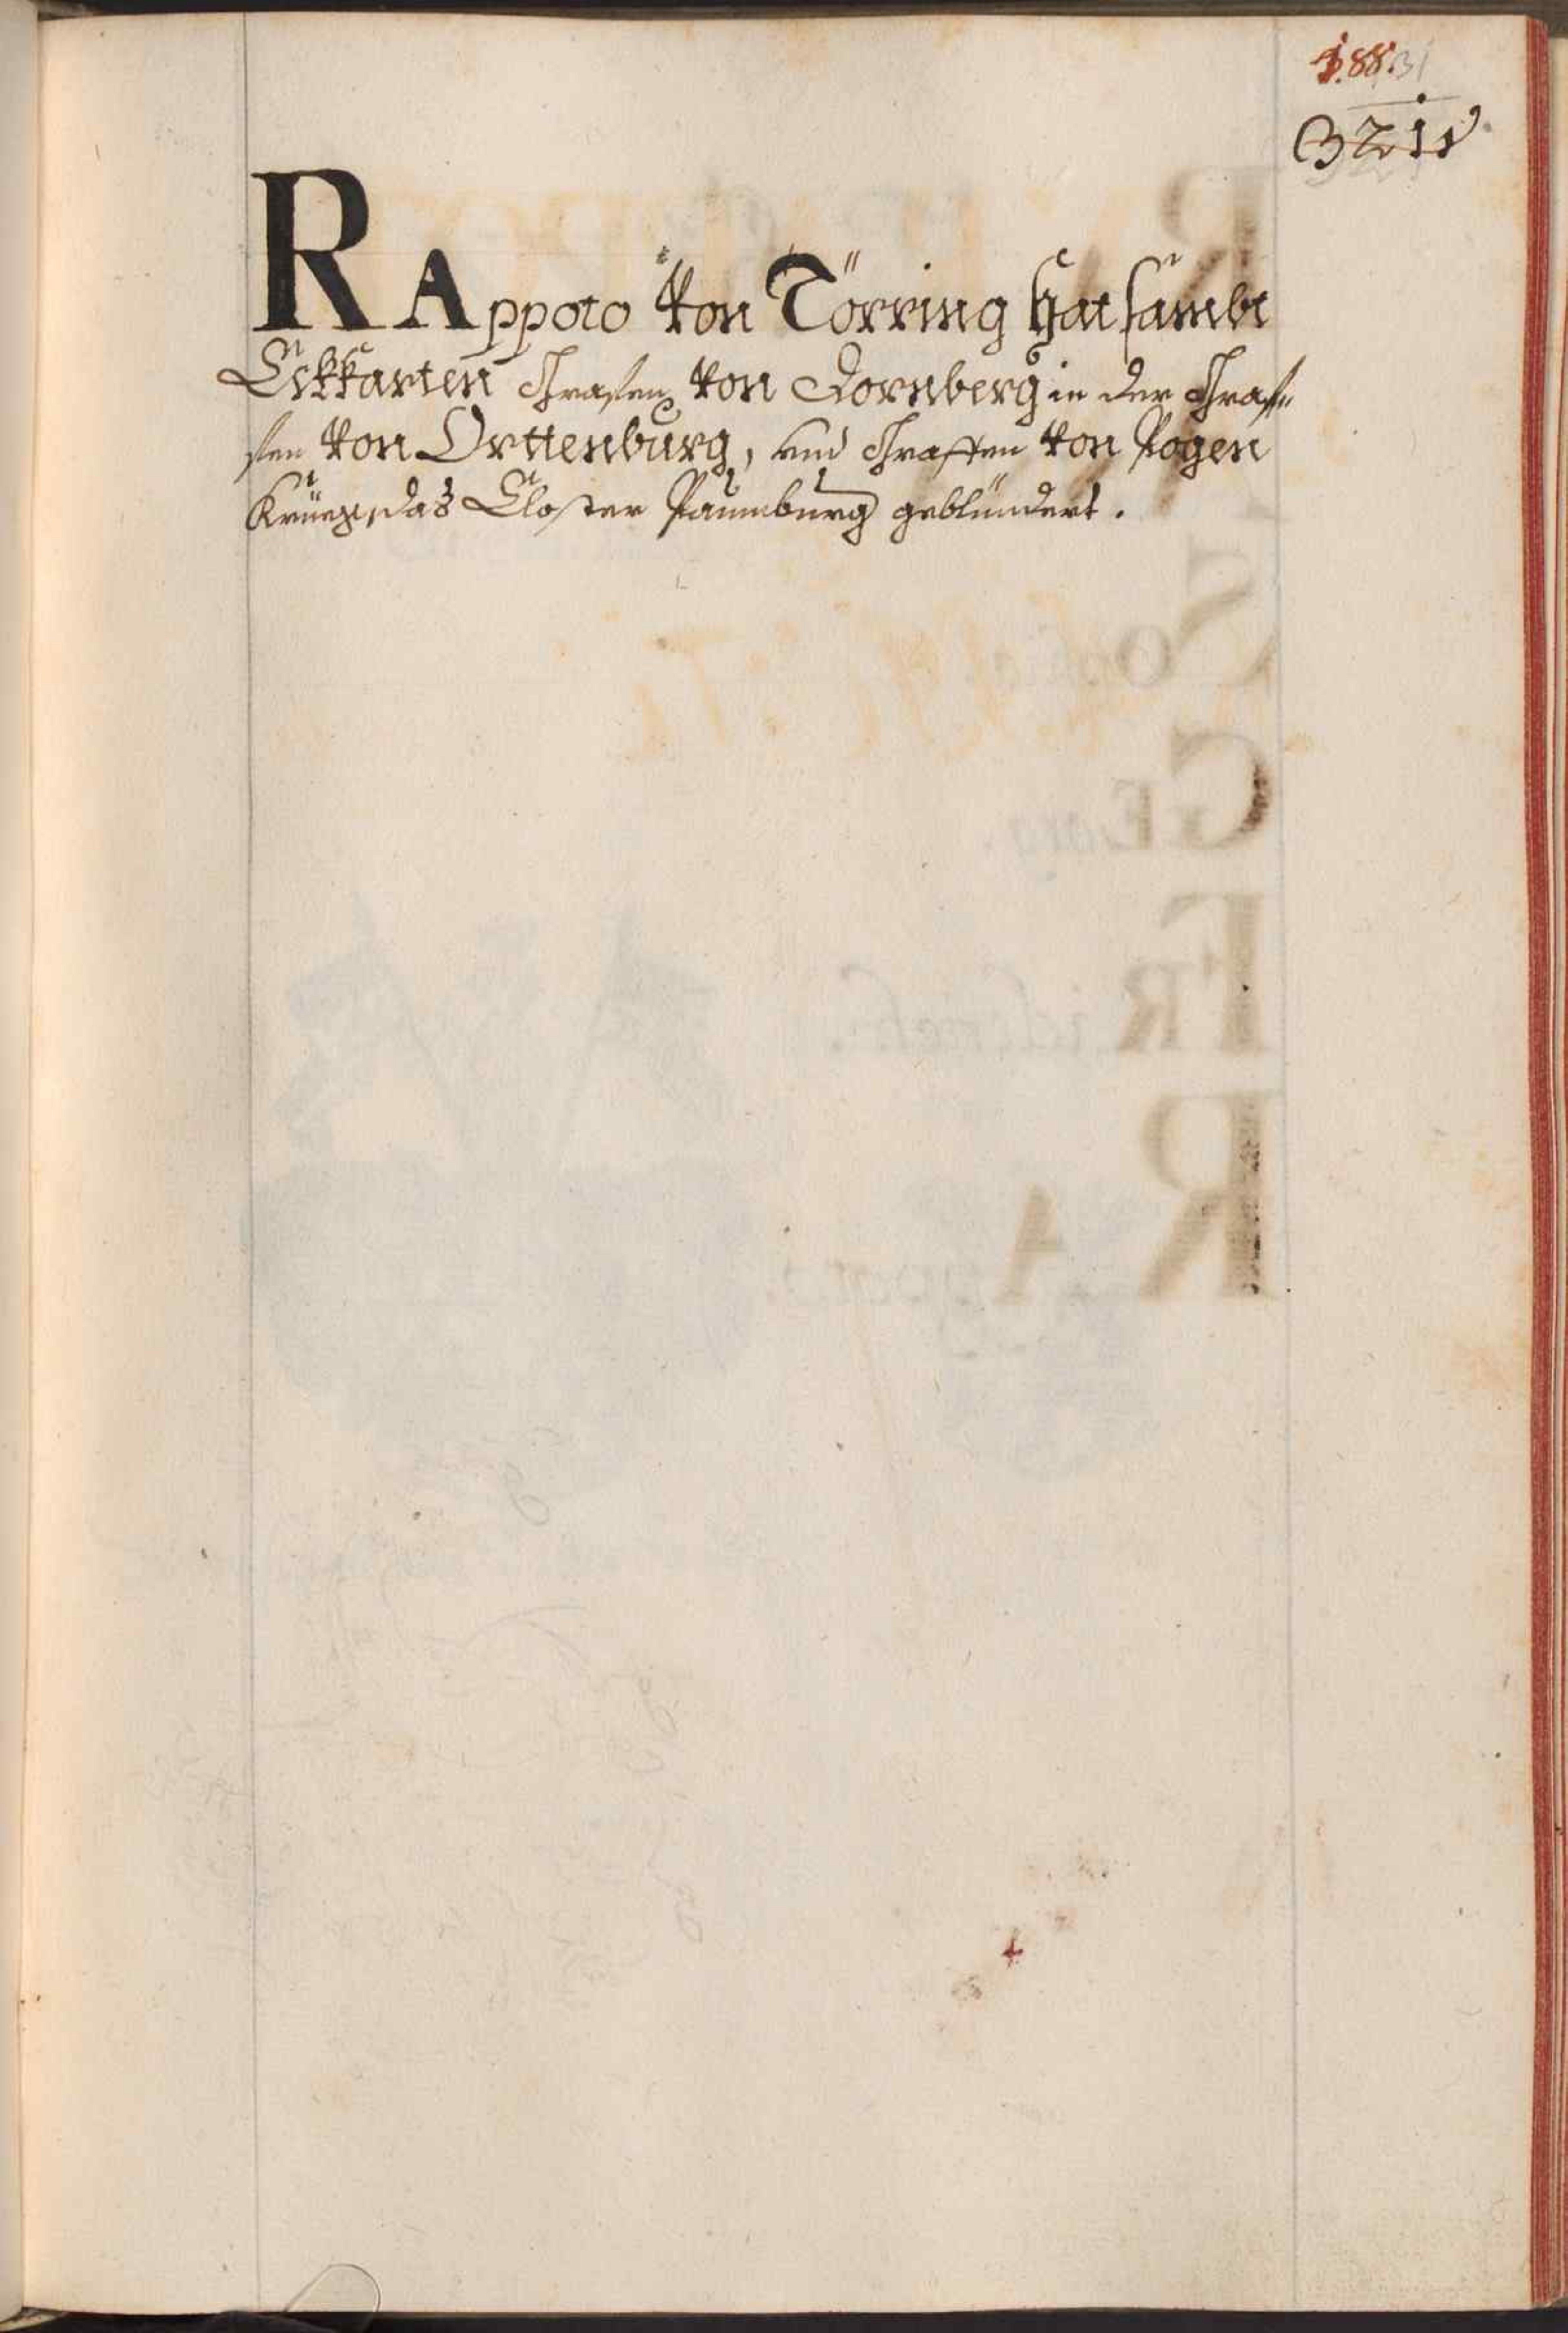 188.
RAppoto von Törring hat sambt
Ekkarten Grafen von Dornberg in der Graf¬
fen von Orttenburg, und Graffen von Pogen
Krüeg, das Closter Paumburg geblündert.